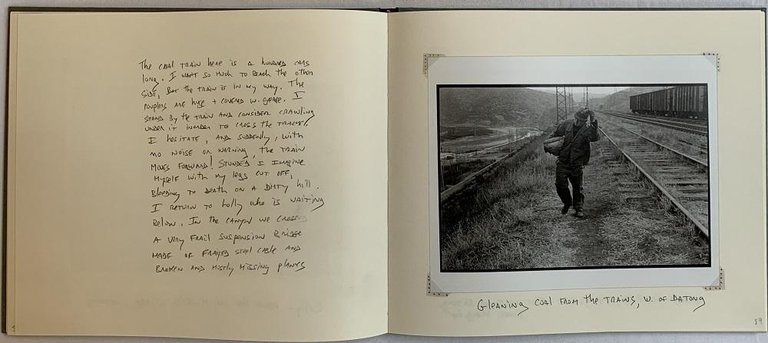 The coal train here is a hundred cars
long. I want so much to reach the other
side, but the train is in my way. The
couplers are huge + covered w. grease. I
stand by the train and consider crawling
under it in order to cross the tracks.
I hesitate, and suddenly, with
no noise or warning, the train
moves forward! Stunned I imagine
myself with my legs cut off,
bleeding to death on a dirty hill.
I return to Holly who is waiting
below. In the canyon we crossed
a very frail suspension bridge
made of frayed steel cable and
broken and mostly missing planks
Gleaning coal from the trains, W. of Datong
59